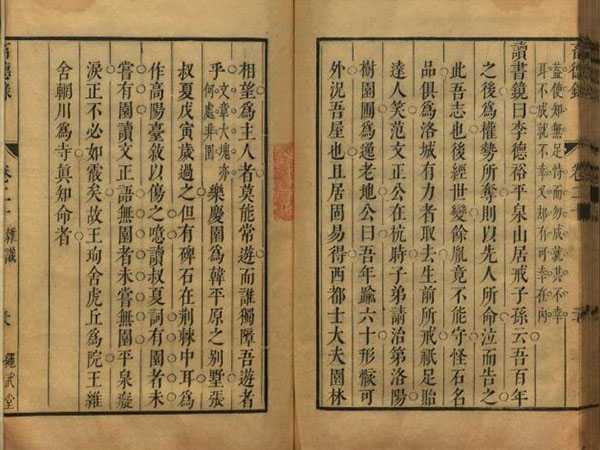 蓋使知無足恃而勿成就其不幸
耳不成就不幸又却有可幸在內
讀書鏡曰李德裕平泉山居戒子孫云吾百年
之後爲權勢所奪則以先人所命泣而告之
此吾志也後經世變餘胤竟不能守怪石名
品俱爲洛城有力者取去生前所戒祇足貽
達人笑范文正公在杭時子弟請治第洛陽
樹園圃爲逸老地公曰吾年踰六十形骸可
外況吾屋也且居固易得西都士大夫園林
相望爲主人者莫能常遊而誰獨障吾遊者
乎文章大塊亦何處非園樂慶園爲韓平原之別墅張
叔夏戊寅歲過之但有碑石在荆棘中耳爲
作高陽臺敘以傷之噫讀叔夏詞有園者未
嘗有園讀文正語無園者未嘗無園平泉癡
淚正不必如霰矣故王珣舍虎丘爲院王維
舍輞川爲寺眞知命者
雜識
繩武堂